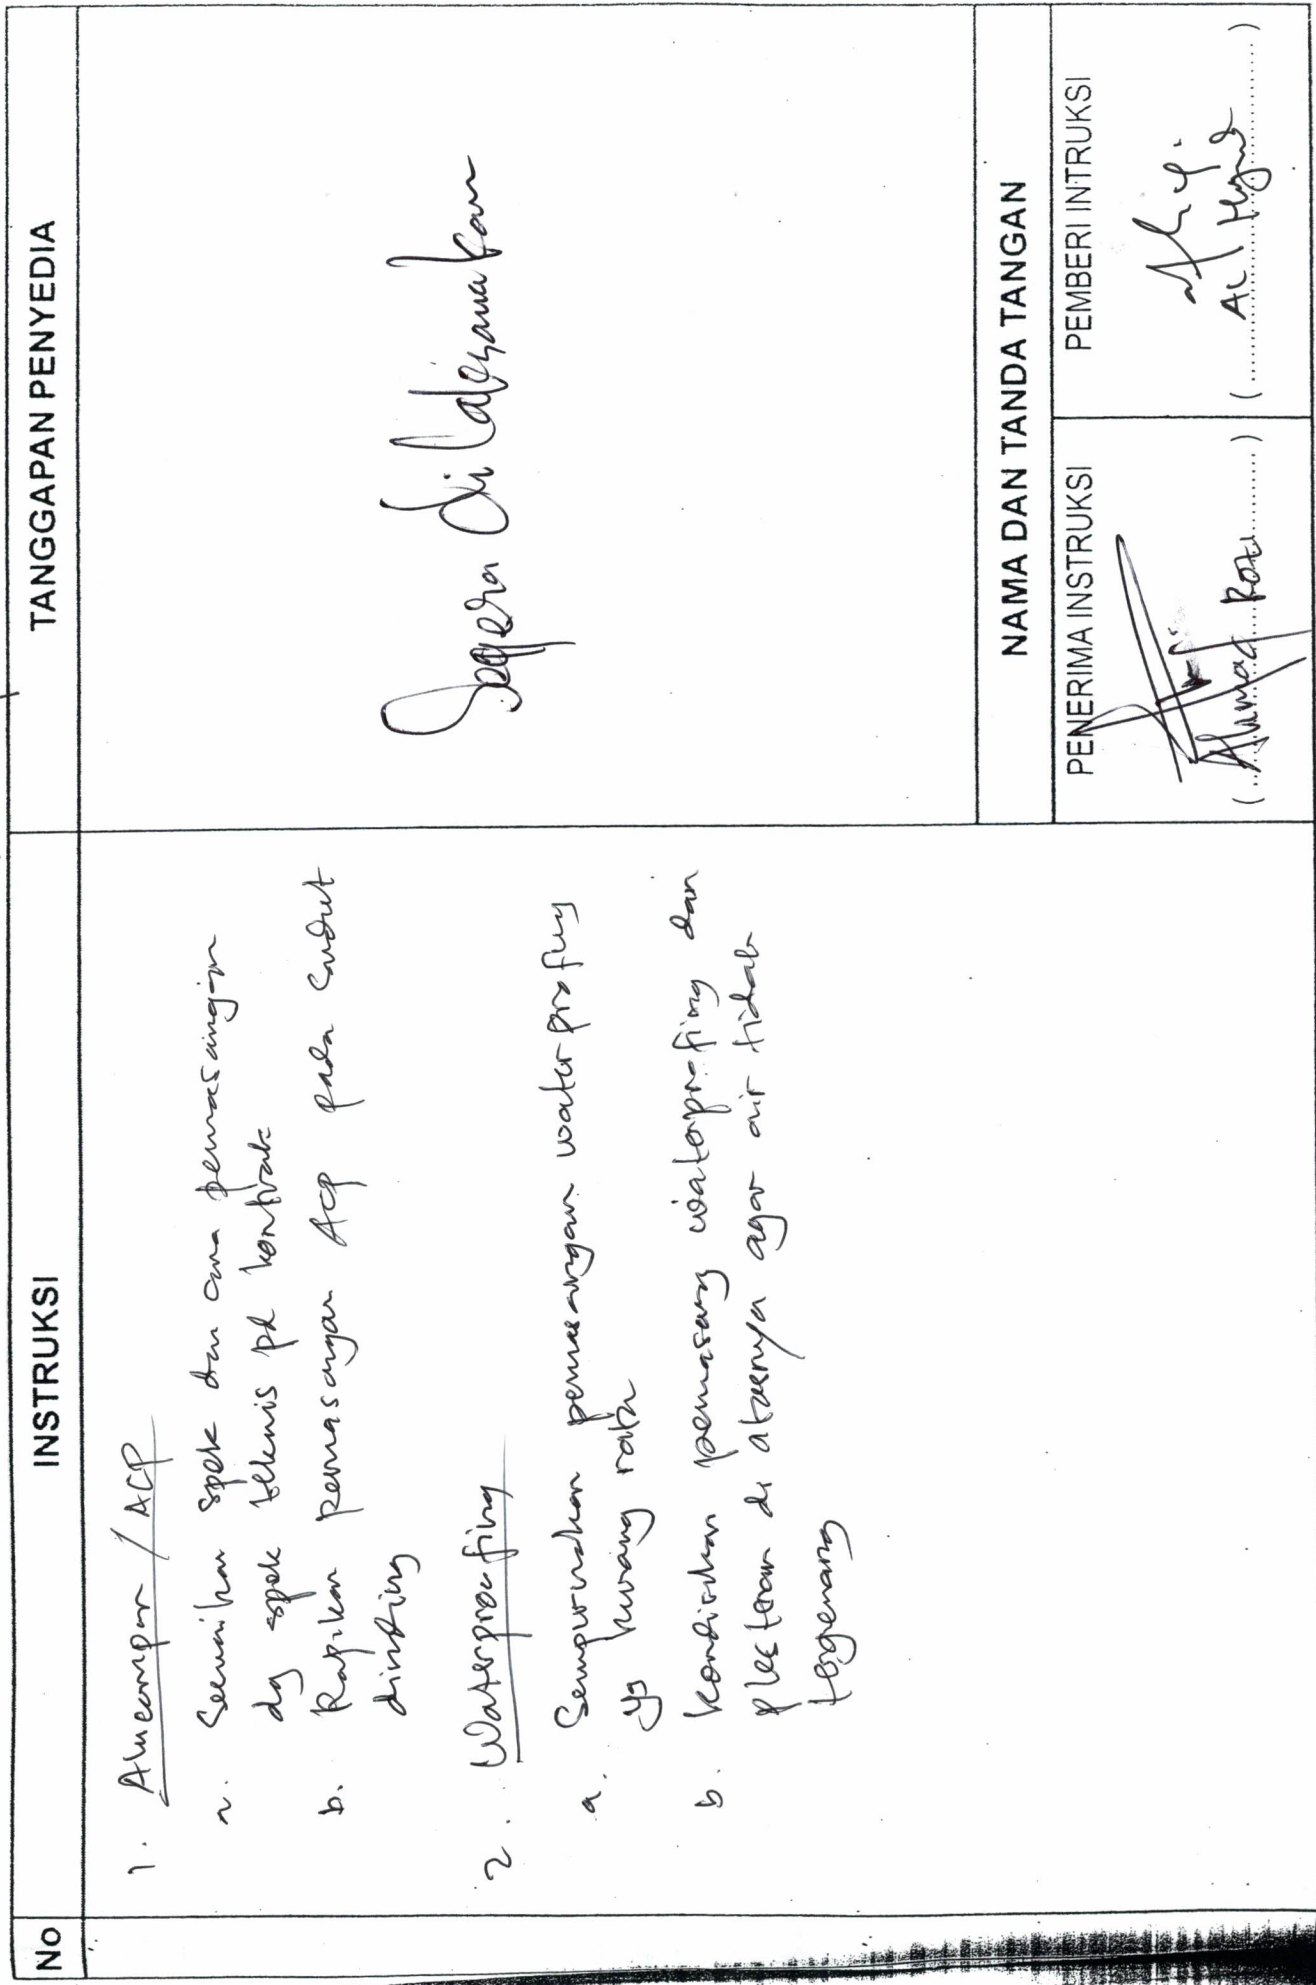 No
INSTRUKSI
TANGGAPAN PENYEDIA
1. Alucompan / ACP
a. Sesuaikan spek dan cara pemasangan
dg spek teknis pd kontrak
b. Rapikan pemasangan ACP pada sudut
dinding
2. Waterprofing
a. Sempurnakan pemasangan waterprofing
yg kurang rata
b. Kondisikan pemasang waterprofing dan
plesteran di atasnya agar air tidak
tergenang
Segera di laksanakan
NAMA DAN TANDA TANGAN
PENERIMA INSTRUKSI
PEMBERI INTRUKSI